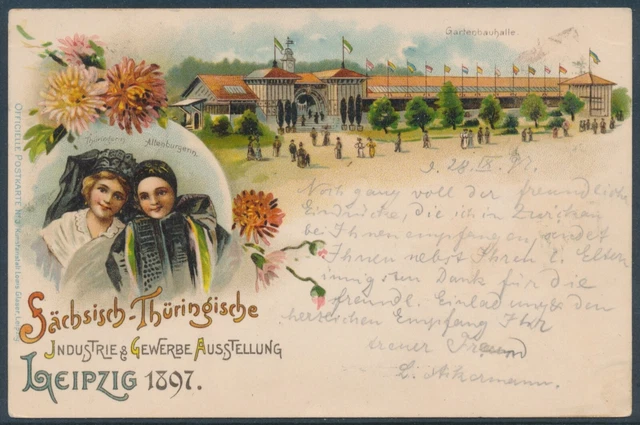 Gartenbauhalle.
Thüringerin.
Altenburgerin.
OFFICIELLE POSTKARTE No
d. 28/IX. 97.
Noch ganz voll der freundliche
Eindrücke, die ich in Zwickau
bei Ihnen empfangen, sendet
Ihnen nebst Ihren l. Eltern
innigsten Dank für die
freundl. Einladung & den
herzlichen Empfang Ihr
treuer Freund
Ackermann.
Sächsisch-Thüringische
INDUSTRIE & GEWERBE AUSSTELLUNG
LEIPZIG 1897.